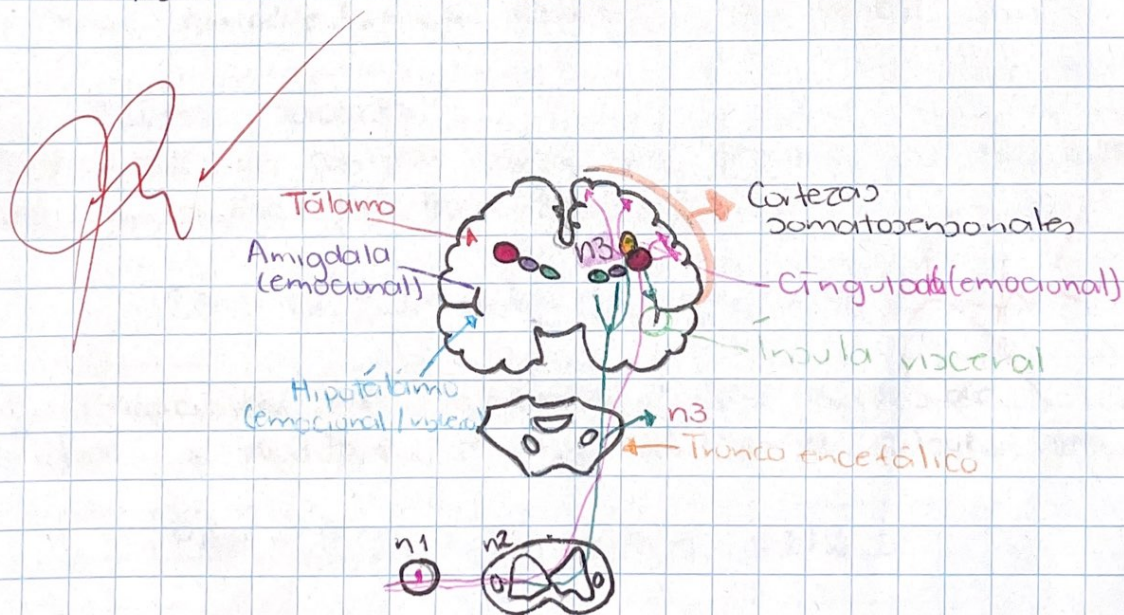 Tálamo
Amigdala
(emocional)
Hipotálamo
(emocional/visceral)
Cortezas
somatosensoriales
n3
Cíngulo (emocional)
Ínsula visceral
n3
Tronco encefálico
n1
n2